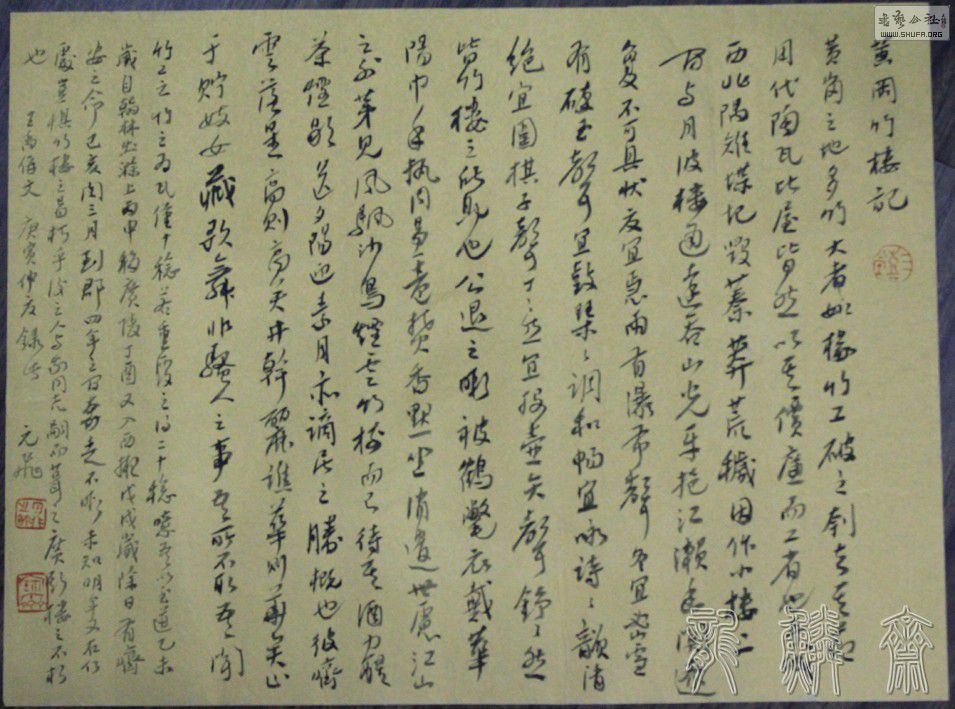 黄岡竹樓記
黄岡之地多竹大者如椽竹工破之刳去其節
用代陶瓦比屋皆然以其價廉而工省也
西北隅雉堞圮毁蓁莽荒穢因作小樓二
間与月波樓通遠吞山光平挹江瀨幽闃遼
夐不可具狀夏宜急雨有瀑布聲冬宜密雪
有碎玉聲宜鼓琴々調和畅宜咏詩々韻清
絶宜圍棋子聲丁々然宜投壺矢聲錚々然
皆竹樓之所助也公退之暇被鶴氅衣戴華
陽巾手執周易一卷焚香默坐消遣世慮江山
之外第見風颿沙鳥煙雲竹樹而已待其酒力醒
茶煙歇送夕陽迎素月亦謫居之勝概也彼齊
雲落星高則高矣井幹麗譙華則華矣止
于貯妓女藏歌舞非騷人之事吾所不取吾聞
竹工云竹之爲瓦僅十稔若重覆之得二十稔噫吾以至道乙未
歲自翰林出滁上丙申移廣陵丁酉又入西掖戊戌歲除日有齊
安之命己亥閏三月到郡四年之間奔走不暇未知明年又在何
處豈懼竹樓之易朽乎後之人与我同志嗣而葺之庶斯樓之不朽
也 王禹偁文 庚寅仲夏録此 元飛
龍麟齋
書藝公社
WWW.SHUFA.ORG